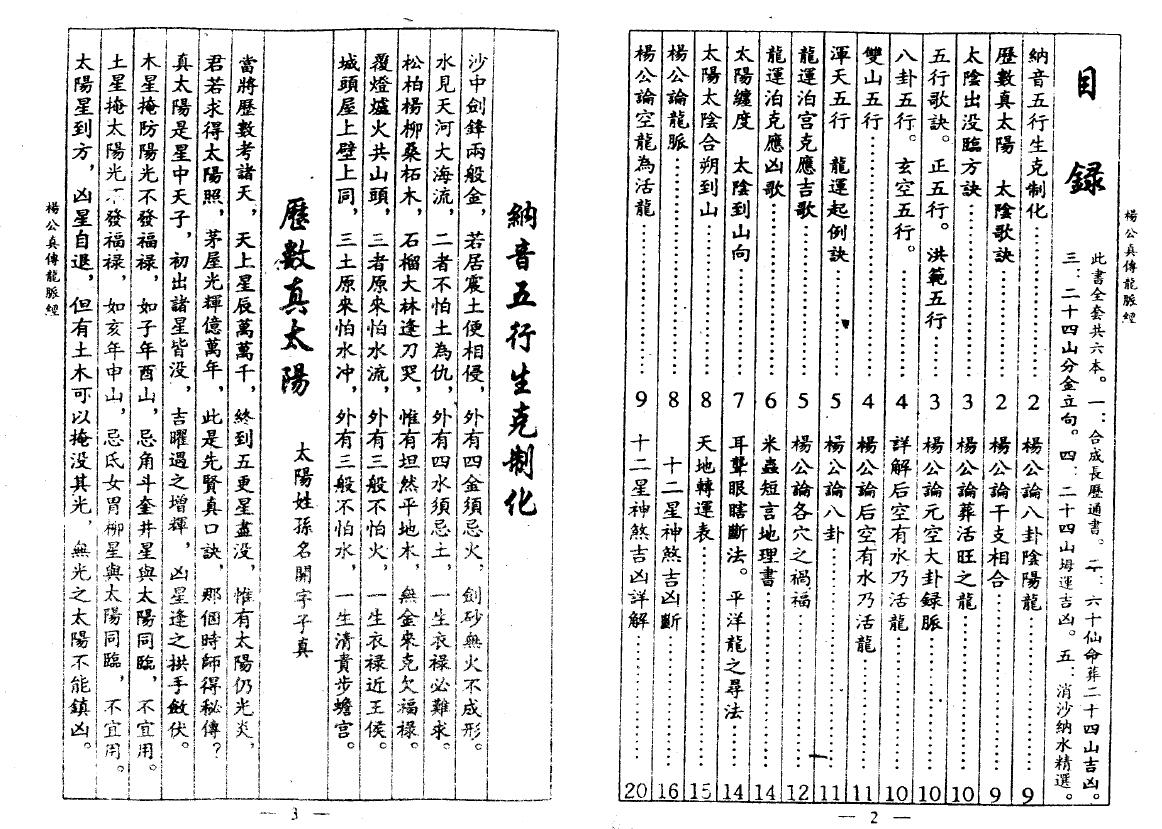 楊公真傳龍脈經
目 録
此書全套共六本。一：合成長歷通書。二、六十仙命葬二十四山吉凶。
三、二十四山分金立向。四、二十四山坶運吉凶。五、消沙納水精選。
納音五行生克制化………2 楊公論八卦陰陽龍………9
歷數真太陽 太陰歌訣………2 楊公論干支相合………9
太陰出没臨方訣………3 楊公論葬活旺之龍………10
五行歌訣。正五行。洪範五行………3 楊公論元空大卦録脈………10
八卦五行。玄空五行。………4 詳解后空有水乃活龍………10
雙山五行………4 楊公論后空有水乃活龍………11
渾天五行 龍運起例訣………5 楊公論八卦………11
龍運泊宫克應吉歌………5 楊公論各穴之禍福………12
龍運泊克應凶歌………6 米蟲短言地理書………14
太陽纏度 太陰到山向………7 耳聾眼瞎斷法。平洋龍之尋法………14
太陽太陰合朔到山………8 天地轉運表………15
楊公論龍脈………8 十二星神煞吉凶斷………16
楊公論空龍為活龍………9 十二星神煞吉凶詳解………20
— 2 —
納音五行生克制化
沙中劍鋒兩般金，若居震土便相侵，外有四金須忌火，劍砂無火不成形。
水見天河大海流，二者不怕土為仇，外有四水須忌土，一生衣禄必難求。
松柏楊柳桑柘木，石榴大林逢刀哭，惟有坦然平地木，無金來克欠福禄。
覆燈爐火共山頭，三者原來怕水流，外有三般不怕火，一生衣禄近王侯。
城頭屋上壁上同，三土原來怕水冲，外有三般不怕水，一生清貴步蟾宫。
歷數真太陽
太陽姓孫名開字子真
當將歷數考諸天，天上星辰萬萬千，終到五更星盡没，惟有太陽仍光炎，
君若求得太陽照，茅屋光輝億萬年，此是先賢真口訣，那個時師得秘傳？
真太陽是星中天子，初出諸星皆没，吉曜遇之增輝，凶星逢之拱手斂伏。
木星掩防陽光不發福禄，如子年酉山，忌角斗奎井星與太陽同臨，不宜用。
土星掩太陽光不發福禄，如亥年申山，忌氐女胃柳星與太陽同臨，不宜用。
太陽星到方，凶星自退，但有土木可以掩没其光，無光之太陽不能鎮凶。
楊公真傳龍脈經
— 3 —